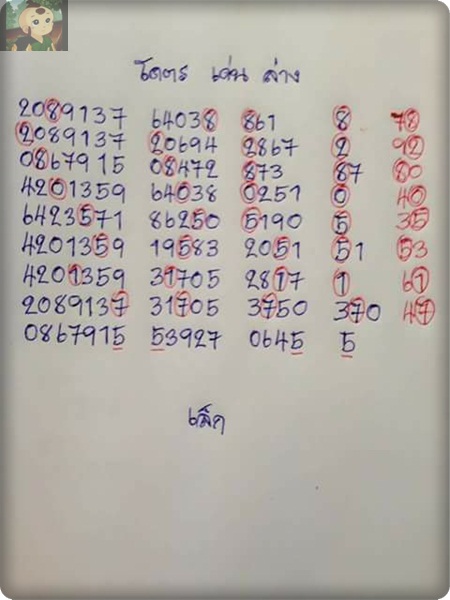 โคตร เด่น ล่าง
2089137 64038 861 8 78
2089137 20694 2867 2 92
0867915 08472 873 87 80
4201359 64038 0251 0 40
6423571 86250 5190 5 35
4201359 19583 2051 51 53
4201359 31705 2817 1 61
2089137 31705 3750 370 47
0867915 53927 0645 5